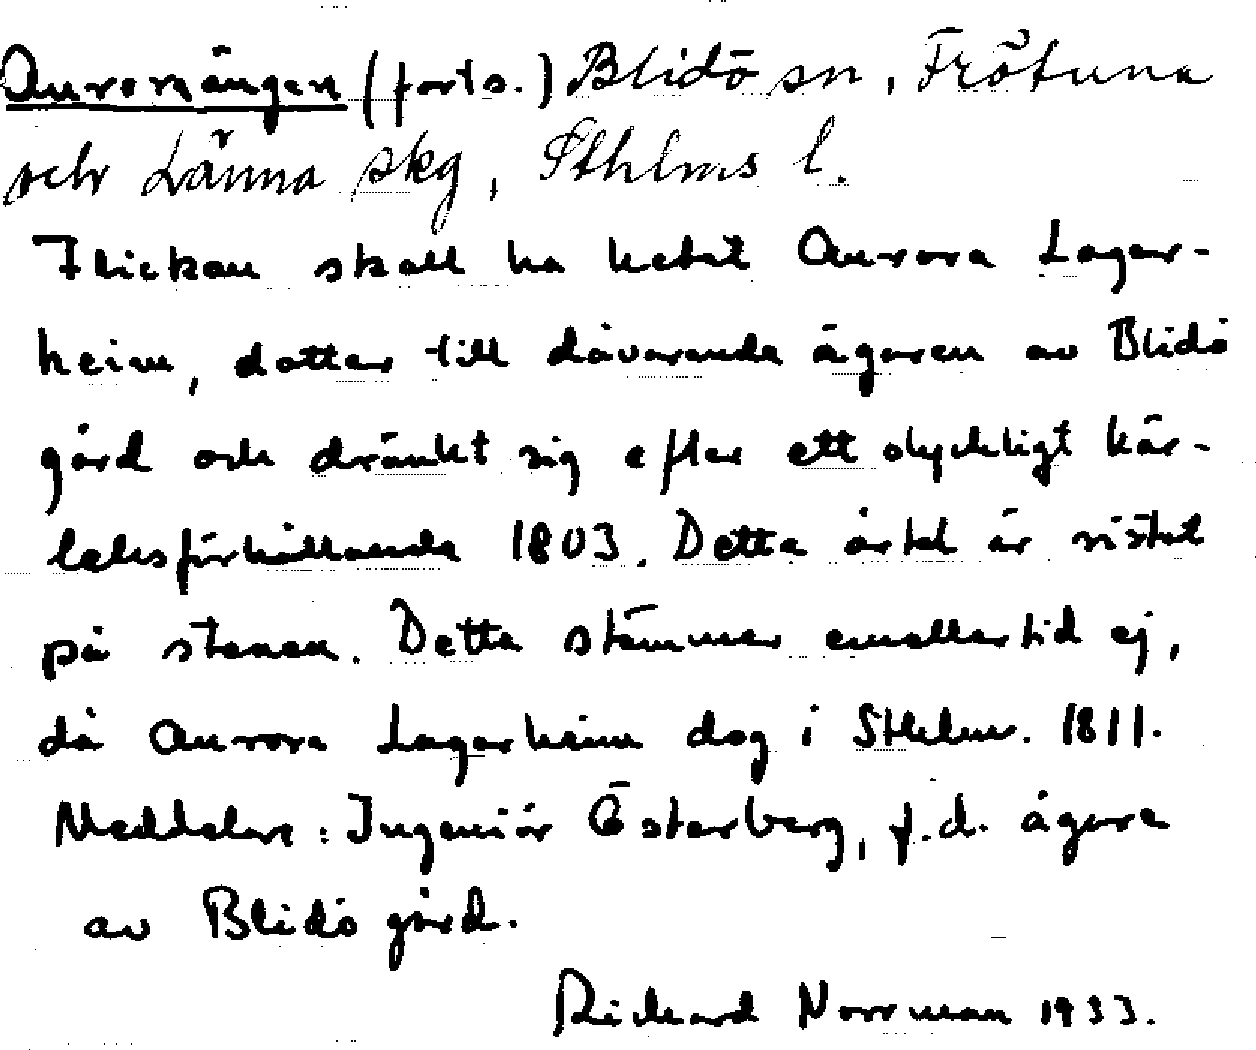 Auroraängen (forts.) Blidö sn, Frötuna
och Länna skg, Sthlms l.
Flickan skall ha hetat Aurora Lager-
heim, dotter till dåvarande ägaren av Blidö
gård och dränkt sig efter ett olyckligt kär-
leksförhållande 1803. Detta årtal är ristat
på stenen. Detta stämmer emellertid ej,
då Aurora Lagerheim dog i Sthlm. 1811.
Meddelare: Ingeniör Österberg, f.d. ägare
av Blidö gård.
Rickard Norrman 1933.